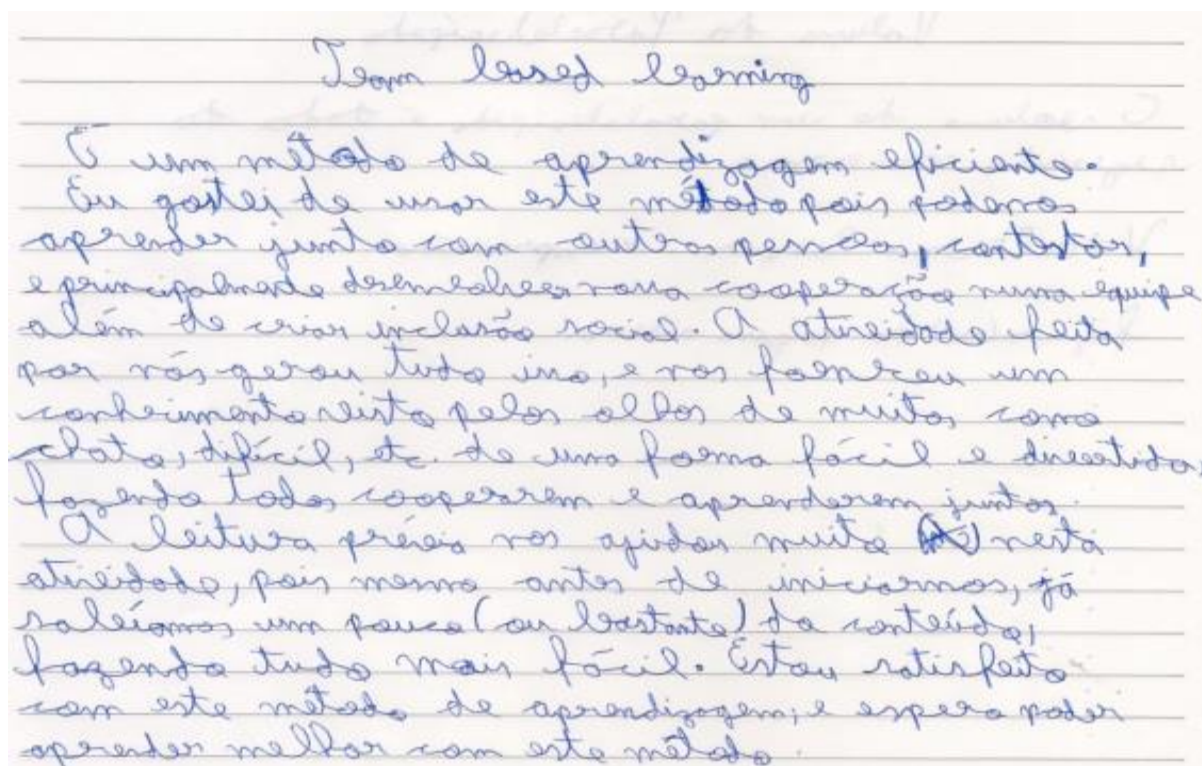 Team based learning
É um método de aprendizagem eficiente.
Eu gostei de usar este método pois podemos
aprender junto com outras pessoas, contestar,
e principalmente desenvolver nova cooperação numa equipe
além de criar inclusão social. A atividade feita
por nós gerou tudo isso, e nos forneceu um
conhecimento visto pelos olhos de muitos como
chato, difícil, etc. de uma forma fácil e divertida,
fazendo todos cooperarem e aprenderem juntos.
A leitura prévia nos ajudou muito nesta
atividade, pois mesmo antes de iniciarmos, já
sabíamos um pouco (ou bastante) do conteúdo,
fazendo tudo mais fácil. Estou satisfeito
com este método de aprendizagem, e espero poder
aprender melhor com este método.